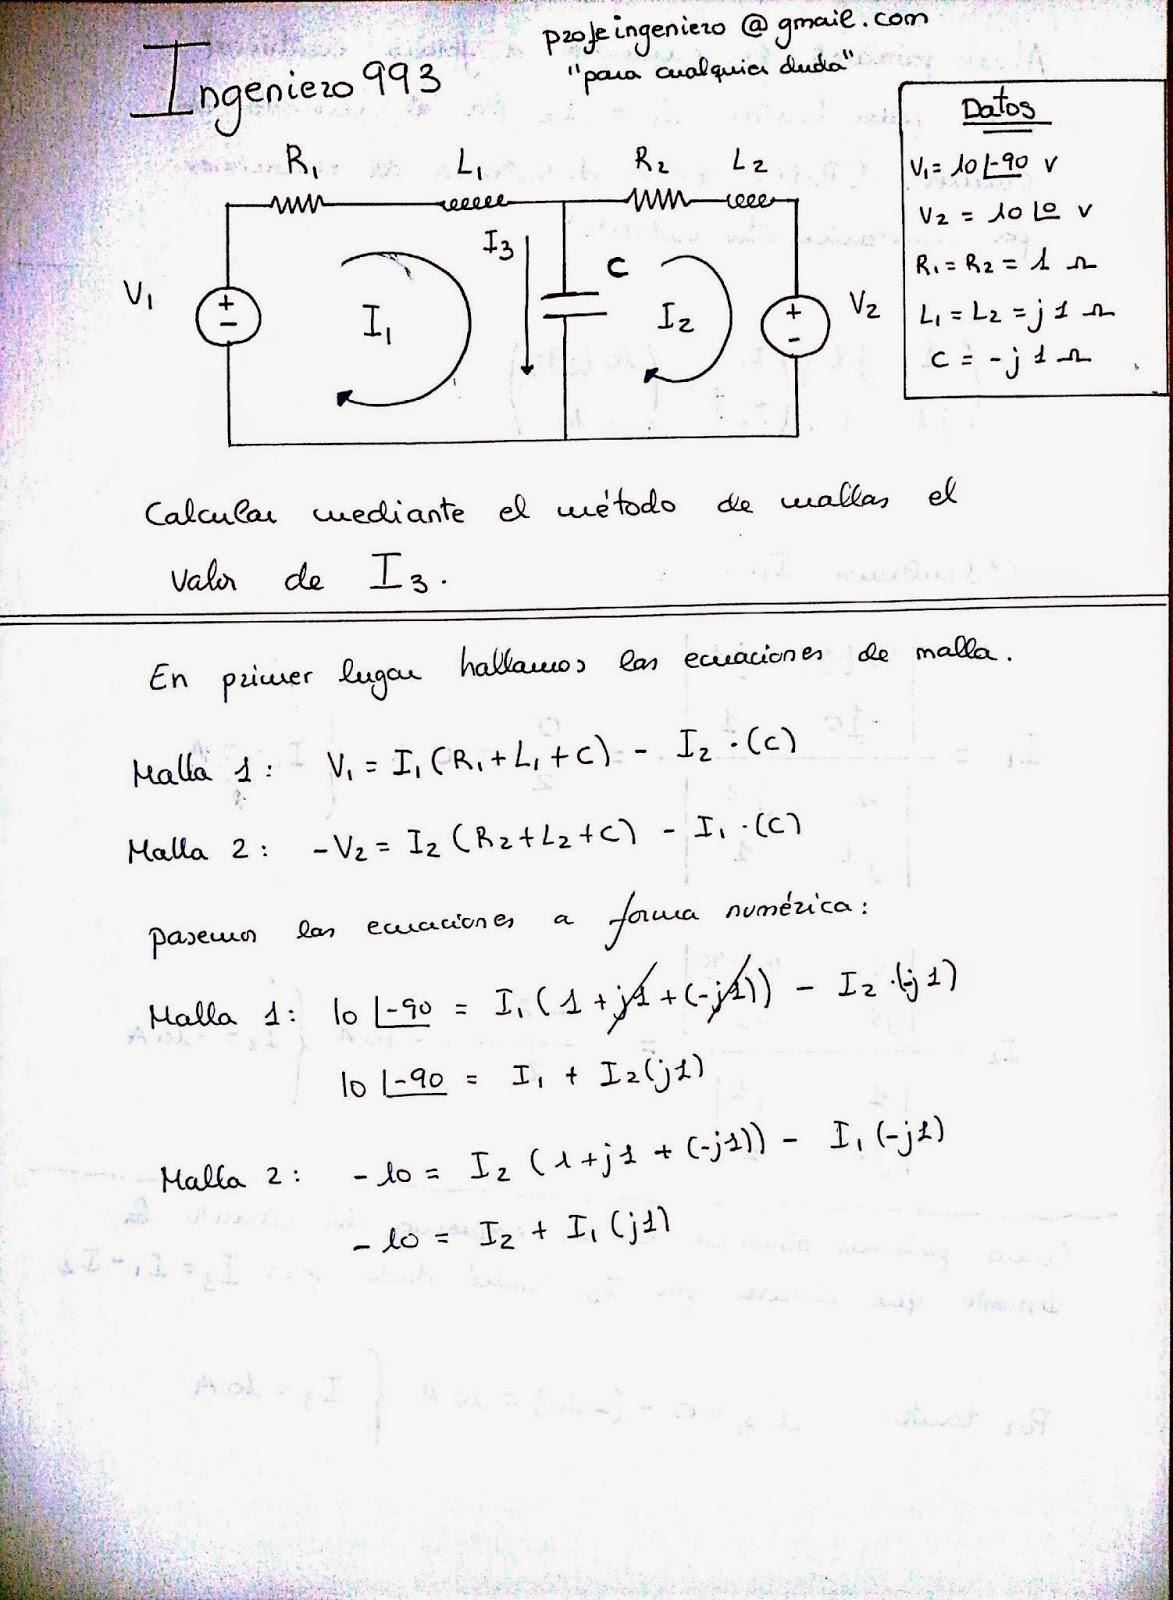 profeingeniero @ gmail.com
"para cualquier duda"
Ingeniero 993
Datos
V1 = 10 ∠-90 v
V2 = 10 ∠0 v
R1 = R2 = 1 Ω
L1 = L2 = j 1 Ω
C = -j 1 Ω
R1 L1 R2 L2
I3 C
V1 + - I1 I2 + - V2
Calcular mediante el método de mallas el
valor de I3.
En primer lugar hallamos las ecuaciones de malla.
Malla 1: V1 = I1 (R1 + L1 + C) - I2 · (C)
Malla 2: -V2 = I2 (R2 + L2 + C) - I1 · (C)
pasemos las ecuaciones a forma numérica:
Malla 1: 10 ∠-90 = I1 (1 + j1 + (-j1)) - I2 · (-j1)
10 ∠-90 = I1 + I2 (j1)
Malla 2: -10 = I2 (1 + j1 + (-j1)) - I1 (-j1)
-10 = I2 + I1 (j1)